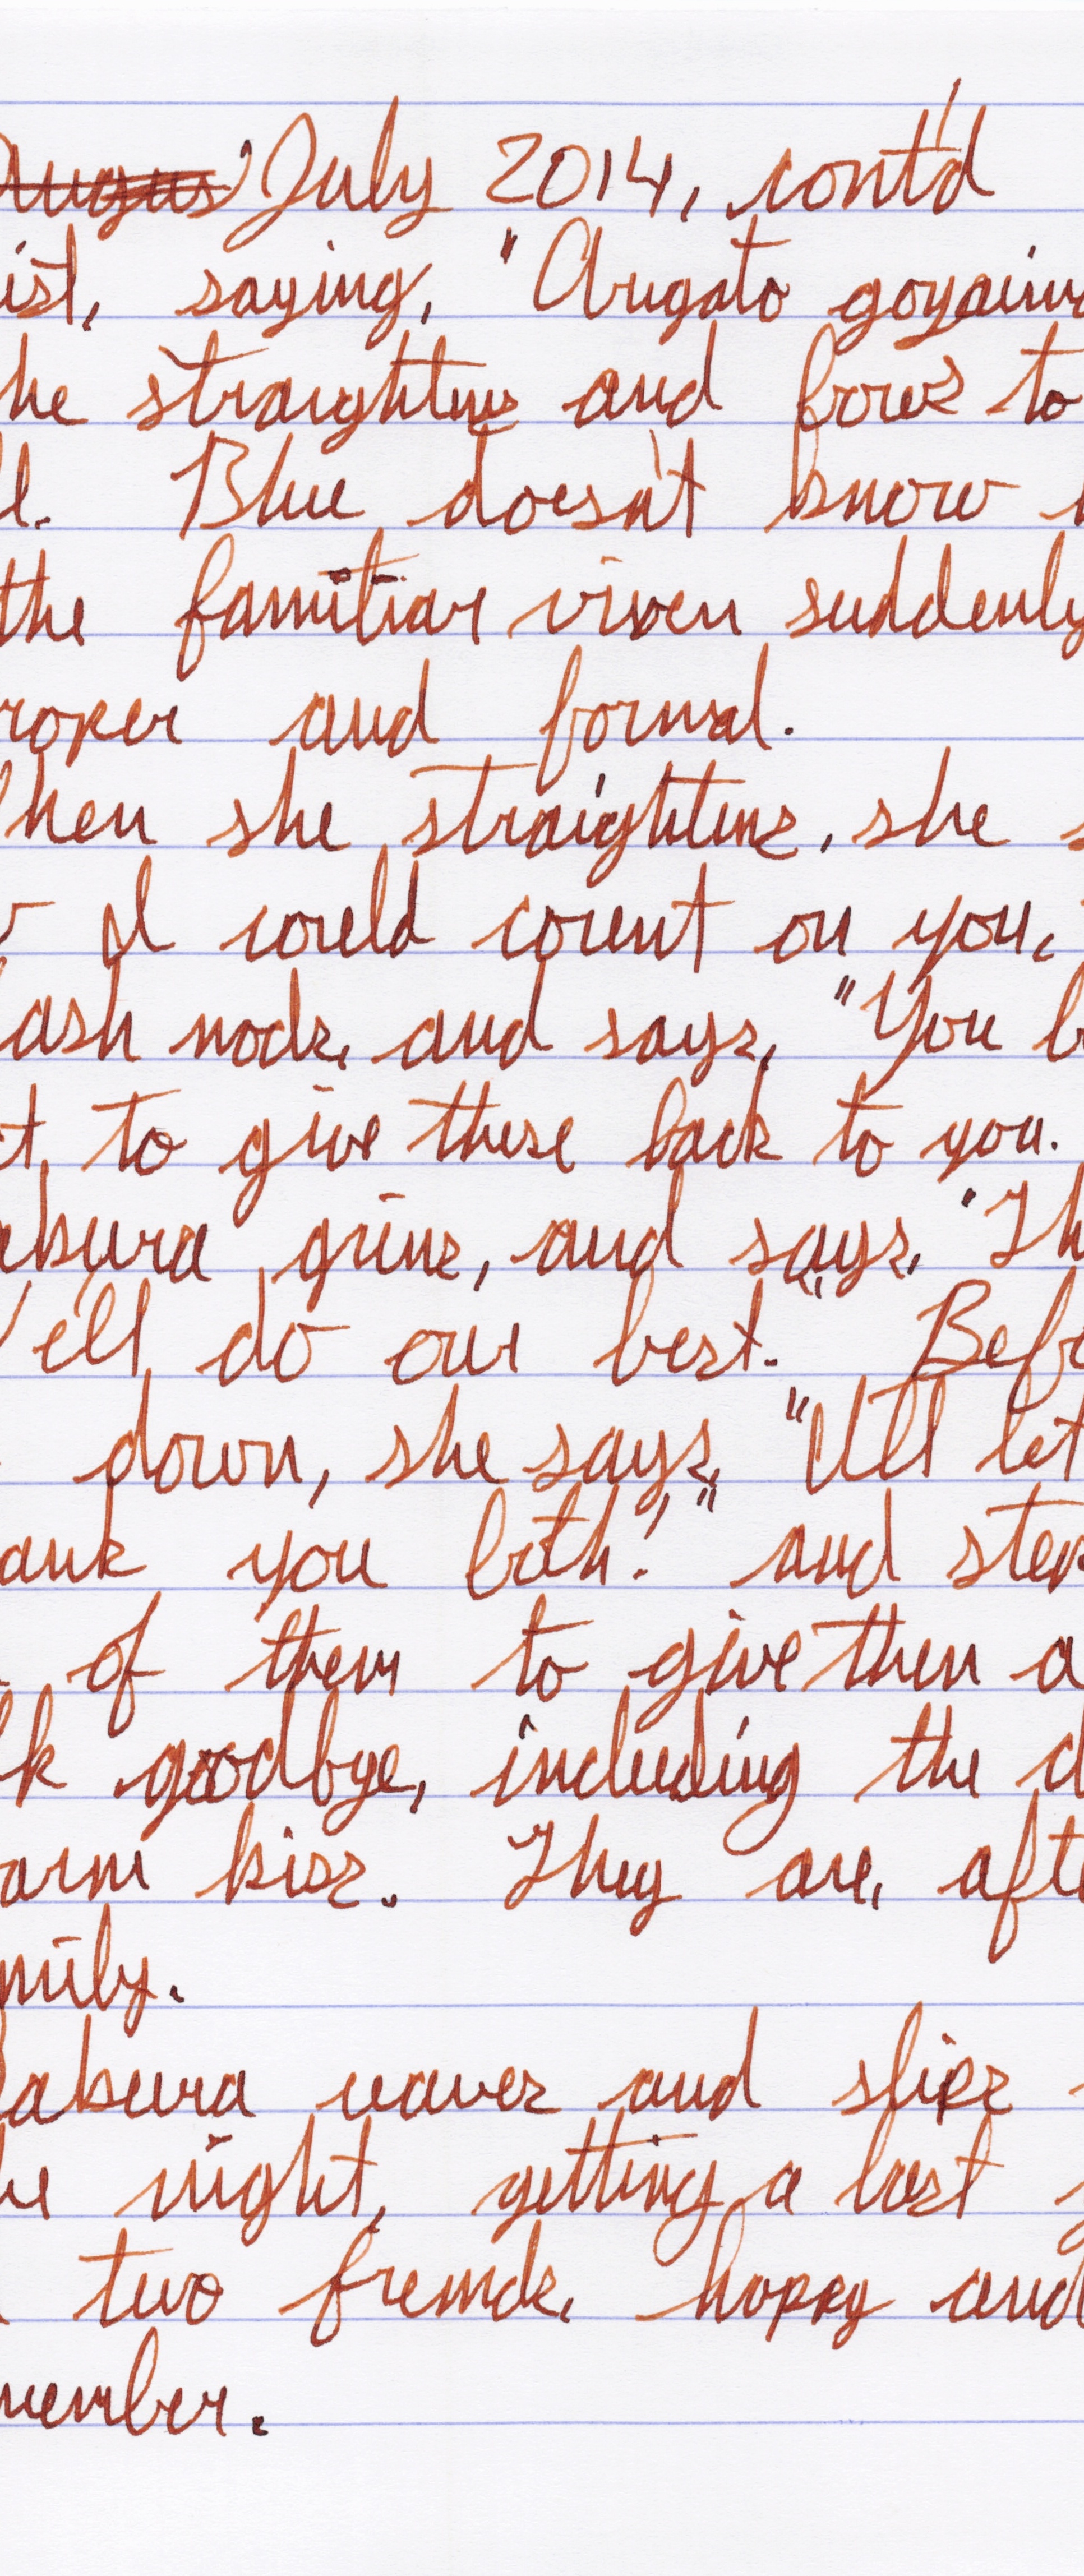 ~~Augus~~ July 2014, cont'd
ist, saying, "Arigato gozaima
he straightens and bows to
l. Blue doesn't know
the familiar vixen suddenly
roper and formal.
hen she straightens, she s
I could count on you,
ash nods, and says, "You b
t, to give these back to you.
akura grins, and says, "Th
e'll do our best." Befo
down, she says, "I'll let
ank you both!" and step
of them to give then a
lk goodbye, including the d
arm kiss. They are, afte
mily.
akura waves and slips
he night, getting a last g
two friends, happy and
member.